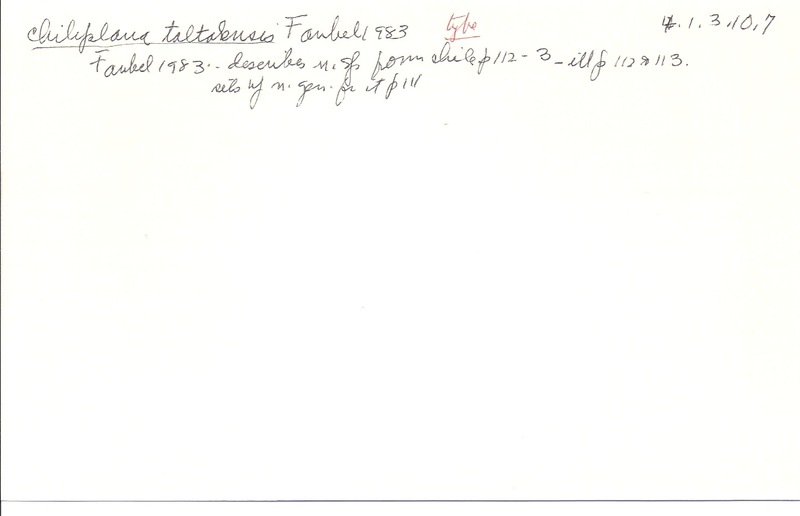 Chiliplana taltalensis Faubel 1983 type 4.1.3.10,7
Faubel 1983.. describes n. sp from Chile p 112-3 - ill p 112 & 113.
sets up n. gen. for it p 111